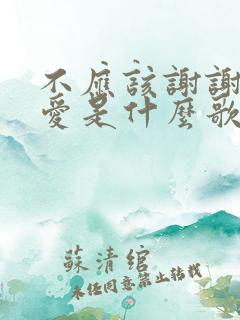 不應該謝謝
愛是什麼歌
蘇清綰
未經同意禁止轉載